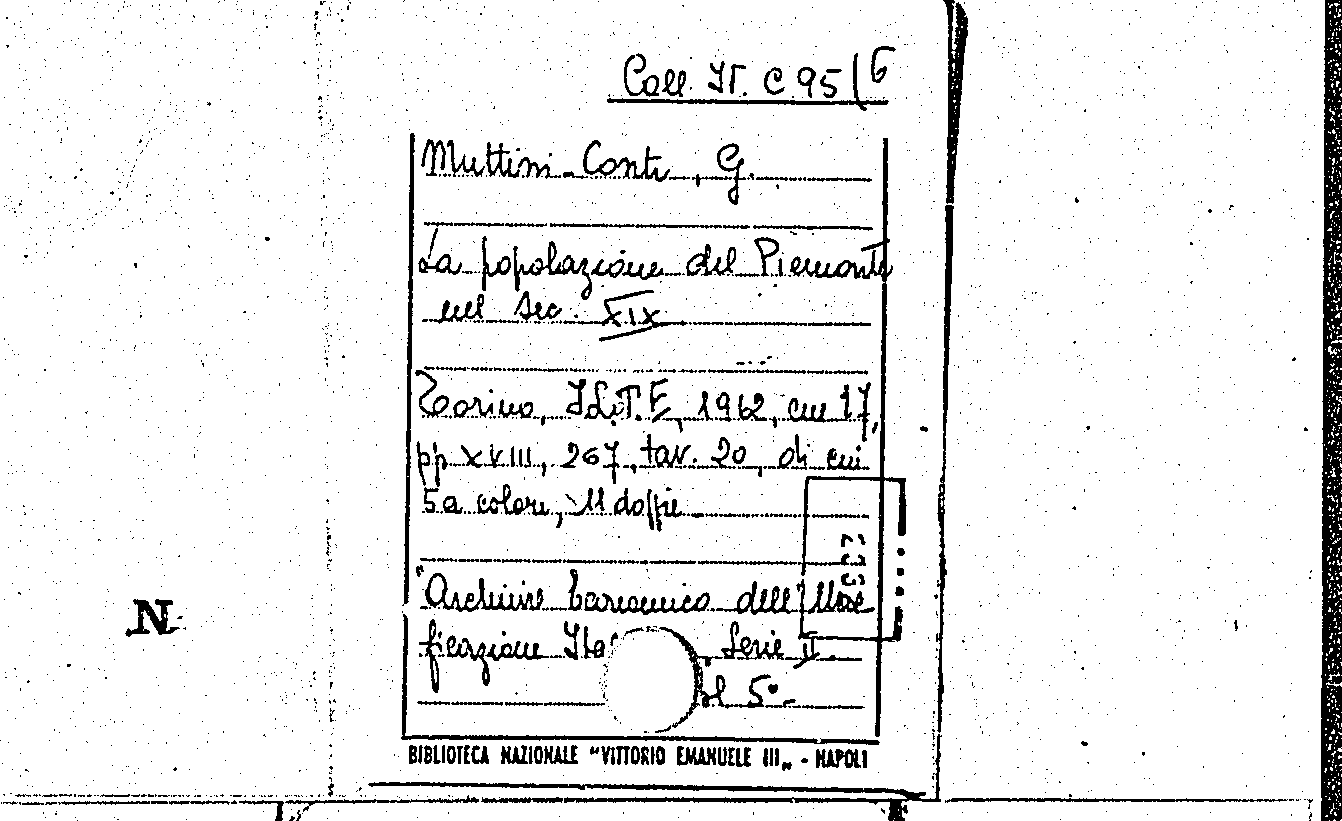 Coll. It. C 95/6
Muttini-Conti, G.
La popolazione del Piemonte
nel sec. XIX
Torino, I.L.T.E., 1962, cm 17,
pp XVIII, 267, tav. 20, di cui
5 a colori, 11 doppie.
"Archivio Economico dell'Uni
ficazione Ita Serie II.
vol 5°.
BIBLIOTECA NAZIONALE "VITTORIO EMANUELE III„ - NAPOLI
N